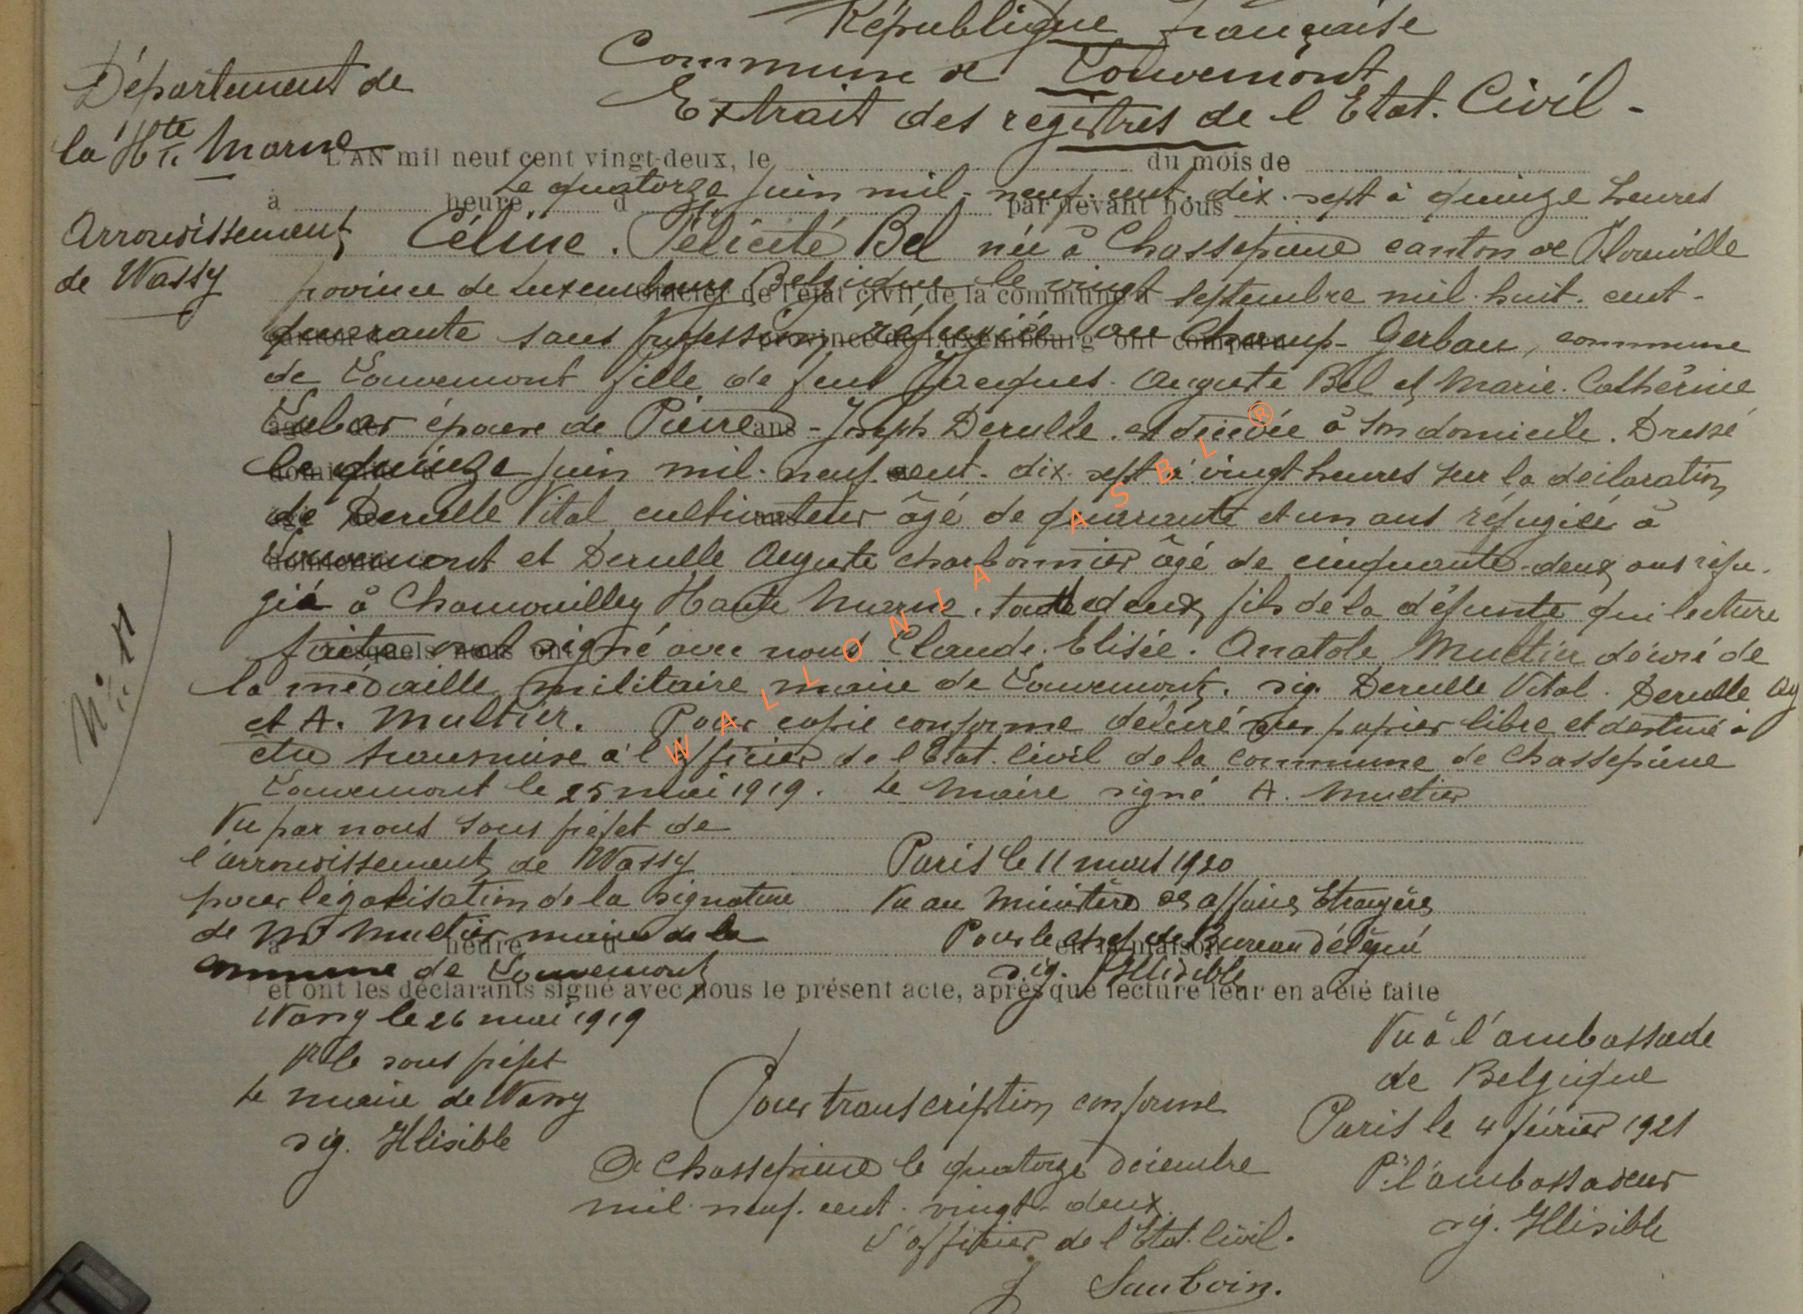 République française
Commune de Louvemont
Extrait des registres de l'Etat. Civil -
Département de
la Hte Marne
L'AN mil neuf cent vingt-deux, le du mois de
Le quatorze juin mil. neuf. cent. dix. sept à quinze heures
à heure d par devant nous
Arrondissement
de Wassy
Céline. Félicité Bel née à Chassepierre canton de Florenville
province de Luxembourg Belgique le vingt septembre mil. huit. cent-
officier de l'état civil de la commune d
quarante sans profession, réfugiée au Champ-Gerbau, commune
province de Luxembourg ont comparu
de Louvemont fille de feus Jacques. Auguste Bel et Marie. Cathérine
épouse de Pierre-Joseph Derulle. est décédée à son domicile. Dressé
âgé de ans
le quinze juin mil. neuf. cent. dix. sept à vingt heures sur la déclaration
domicilié à
de Derulle Vital cultivateur âgé de quarante et un ans réfugié à
Louvemont et Derulle Auguste charbonnier âgé de cinquante-deux ans réfu-
domicilié
gié à Chamouilley Haute Marne. tous deux fils de la défunte qui lecture
faite ont signé avec nous Claude. Elisée. Anatole Multier décoré de
Lesquels nous ont
la médaille militaire maire de Louvemont. sig. Derulle Vital. Derulle Ag
et A. Multier. Pour copie conforme délivré sur papier libre et destiné à
être transmise à l'officier de l'Etat. civil de la commune de Chassepierre
Louvemont le 25 mai 1919. Le Maire signé A. Multier
No 11
Vu par nous sous préfet de
l'arrondissement de Wassy
pour légalisation de la signature
de Mr Multier maire de la
commune de Louvemont
à heure d en la maison
et ont les déclarants signé avec nous le présent acte, après que lecture leur en a été faite
Wassy le 26 mai 1919
Pr le sous préfet
Le maire de Wassy
sig. Illisible
Paris le 11 mars 1920
Vu au Ministère des affaires Etrangères
Pour le chef de Bureau délégué
sig. Illisible
Vu à l'ambassade
de Belgique
Paris le 4 février 1921
Pr l'ambassadeur
sig. Illisible
Pour transcription conforme
à Chassepierre le quatorze décembre
mil. neuf. cent. vingt-deux
L'officier de l'Etat. civil.
J Sauboin.
WALLONIA ASBL ®